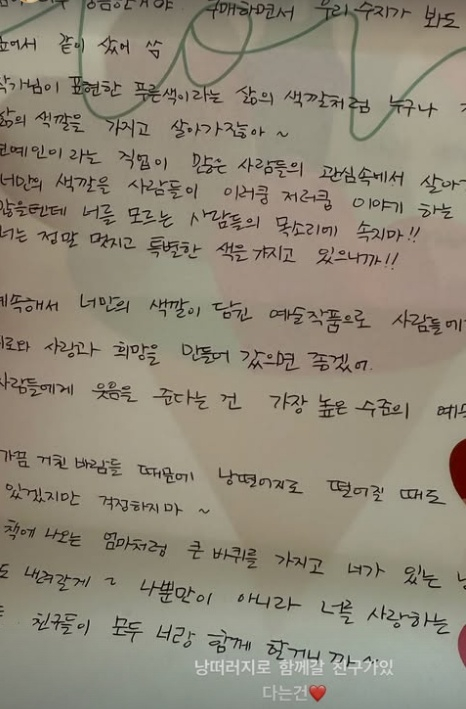 구매하면서 우리 수지가 봐도
같이 샀어 씀
작가님이 표현한 푸른색이라는 삶의 색깔처럼 누구나
삶의 색깔을 가지고 살아가잖아~
연예인이라는 직업이 많은 사람들의 관심속에서 살아
너만의 색깔을 사람들이 이러쿵 저러쿵 이야기 하는
많을텐데 너를 모르는 사람들의 목소리에 속지마!!
너는 정말 멋지고 특별한 색을 가지고 있으니까!!
계속해서 너만의 색깔이 담긴 예술작품으로 사람들에
위로와 사랑과 희망을 만들어 갔으면 좋겠어.
사람들에게 웃음을 준다는 건 가장 높은 수준의 예
가끔 거친 바람들 때문에 낭떨어지로 떨어질 때도
있겠지만 걱정하지마~
책에 나오는 엄마처럼 큰 바퀴를 가지고 너가 있는
내려갈게~ 나뿐만이 아니라 너를 사랑하는
친구들이 모두 너랑 함께 할거니까~
낭떠러지로 함께갈 친구가있
다는건❤️